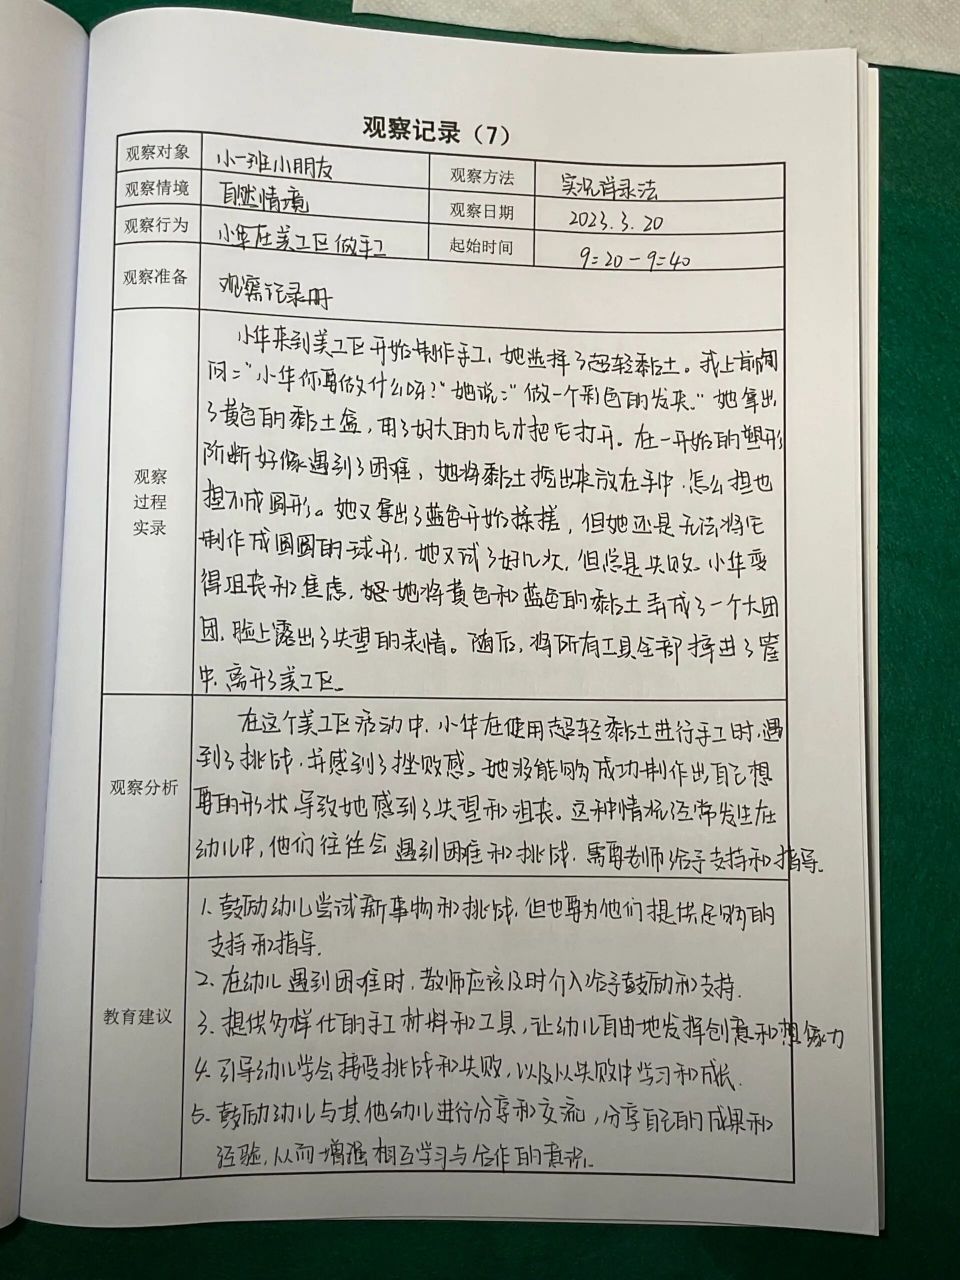 观察记录（7）
观察对象 小一班小朋友 观察方法 实况详录法
观察情境 自然情境 观察日期 2023.3.20
观察行为 小华在美工区做手工 起始时间 9:20-9:40
观察准备 观察记录册
观察过程实录
小华来到美工区开始制作手工,她选择了超轻黏土。我上前询
问:"小华你要做什么呀?"她说:"做一个彩色的发夹."她拿出
了黄色的黏土盒,用了好大的力气才把它打开。在一开始的塑形
阶断好像遇到了困难,她将黏土挖出来放在手中,怎么捏也
捏不成圆形。她又拿出了蓝色开始揉搓,但她还是无法将它
制作成圆圆的球形,她又试了好几次,但总是失败.小华变
得沮丧和焦虑,她将黄色和蓝色的黏土弄成了一个大团
团,脸上露出了失望的表情。随后,将所有工具全部摔进了筐
中,离开了美工区。
观察分析
在这个美工区活动中,小华在使用超轻黏土进行手工时,遇
到了挑战,并感到了挫败感。她没能够成功制作出自己想
要的形状导致她感到了失望和沮丧。这种情况经常发生在
幼儿中,他们往往会遇到困难和挑战,需要老师给予支持和指导.
教育建议
1.鼓励幼儿尝试新事物和挑战,但也要为他们提供足够的
支持和指导.
2.在幼儿遇到困难时,教师应该及时介入给予鼓励和支持.
3.提供多样化的手工材料和工具,让幼儿自由地发挥创意和想像力
4.引导幼儿学会接受挑战和失败,以及从失败中学习和成长.
5.鼓励幼儿与其他幼儿进行分享和交流,分享自己的成果和
经验,从而增强相互学习与合作的意识.